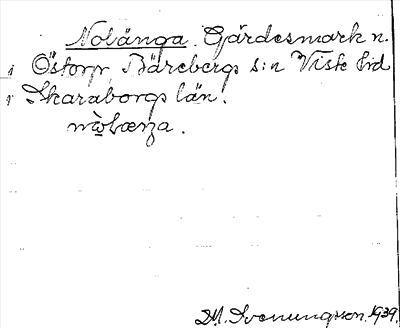 Nolänga. Gärdesmark n.
i Östorp, Bärebergs s:n Viste hd
i Skaraborgs län.
D.M. Svenungsson. 1939.